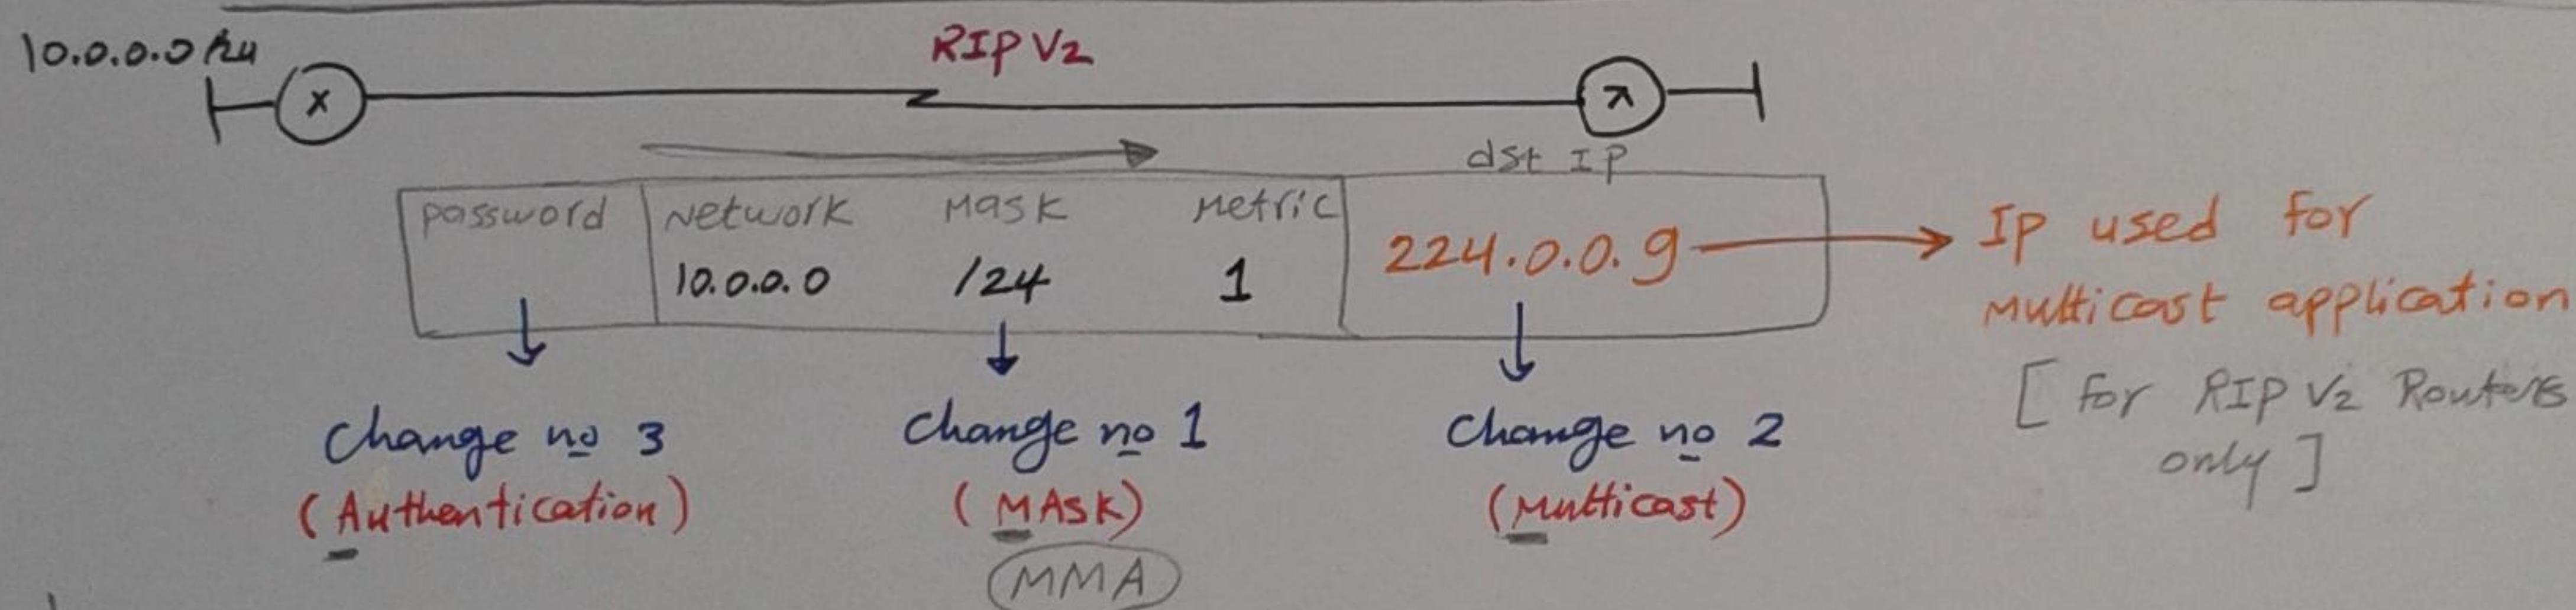 RIP V2
10.0.0.0 /24
x
dst IP
password Network Mask Metric
10.0.0.0 /24 1
224.0.0.9
Ip used for
Multicast application
[for RIP V2 Routers
only]
Change no 3
(Authentication)
Change no 1
(MAsk)
Change no 2
(Multicast)
MMA